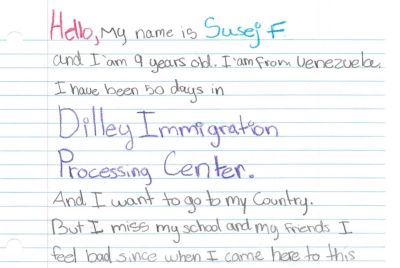 Hello, My name is Susej F
and I'am 9 years old. I'am from Venezuela.
I have been 50 days in
Dilley Immigration
Processing Center.
And I want to go to my Country.
But I miss my school and my friends I
feel bad since when I came here to this